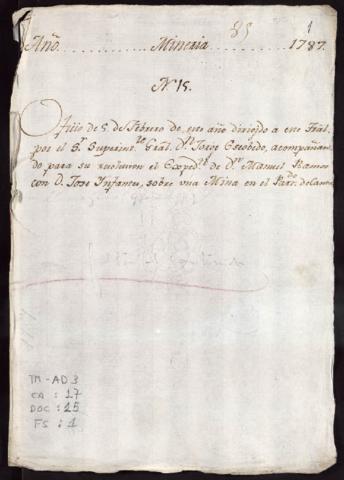 85 1
Año. Mineria 1787.
N 15.
Ofiio de 5 de Febrero de este año dirijido a este Tral.
por el Sr Superinte. Gral. Dn. Jorge Escobedo, acompañan
do para su resolucion el Expedte. de Dn. Manuel Ramos
con D. Jose Infantes, sobre una Mina en el Pardo. de Canta
TM-AD 3
CA : 17
DOC : 15
FS : 1